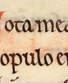 Vota mea
opulo e